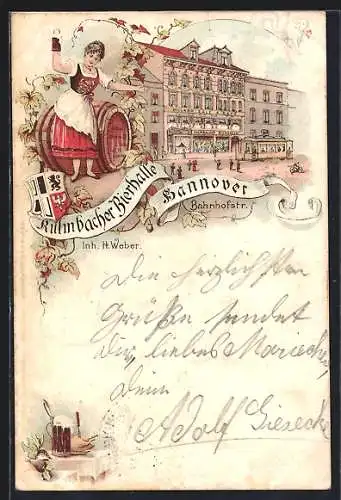 Kulmbacher Bierhalle
Hannover
Bahnhofstr.
Inh. H. Weber.
Die herzlichsten
Grüße sendet
Dir, liebes Mariechen
dein
Adolf Gieseck